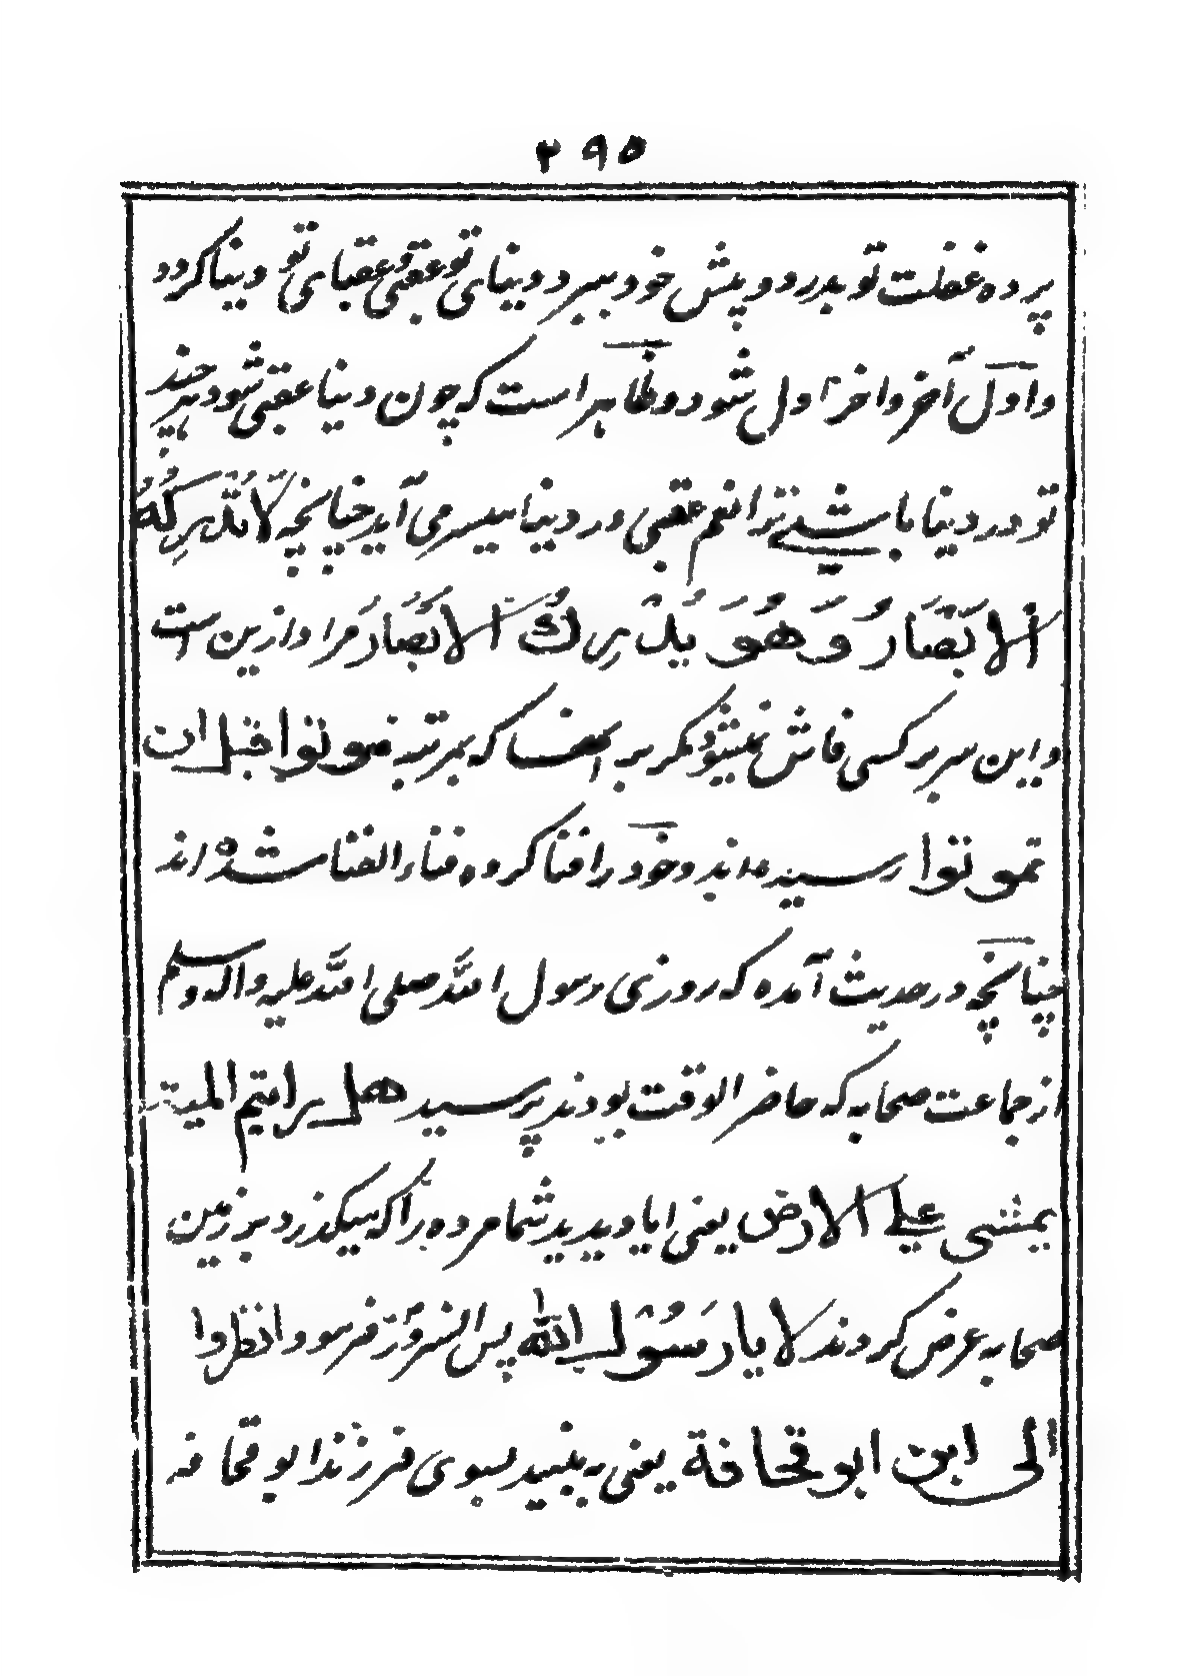 ۲۹۵
پرده غفلت تو بدرد و پیش خود ببرد دنیای تو عقبی عقبای تو دنیا کردد
و اول آخر و اخر اول شود و ظاهر است که چون دنیا عقبی شود هر چند
تو در دنیا باشی ترا نعم عقبی در دنیا میسر می آید چنانچه لَا تُدْرِكُهُ
الْاَبْصَارُ وَهُوَ يُدْرِكُ الْاَبْصَارَ مراد ازین است
و این سر بر کسی فاش نمیشود مگر بر انها که بمرتبه موتوا قبل ان
تموتوا رسیده اند و خود را فنا کرده فناء الفنا شده اند
چنانچه در حدیث آمده که روزی رسول الله صلی الله علیه واله وسلم
از جماعت صحابه که حاضر الوقت بودند پرسید هل رایتم المیت
یمشی علی الارض یعنی ایا دیدید شما مرده را که میگذرد بر زمین
صحابه عرض کردند لا یا رَسُوْلَ الله پس السرور فرمود انظروا
الی ابن ابو قحافة یعنی به بینید بسوی فرزند ابو قحافه